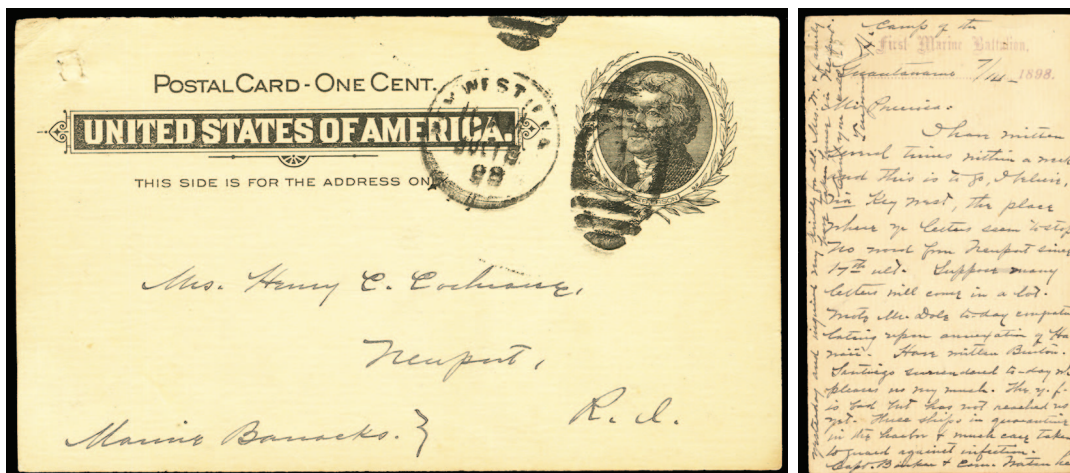 POSTAL CARD - ONE CENT.
UNITED STATES OF AMERICA.
THIS SIDE IS FOR THE ADDRESS ON
WEST
98
Mrs. Henry C. Cochrane,
Newport,
R. I.
Marine Barracks. }
Camp of the
First Marine Battalion,
Guantanamo 7/14 1898.
I have written
several times within a week
and this is to go, I believe,
via Key West, the place
where yr letters seem to stop
No word from Newport since
17th ult. Suppose many
letters will come in a lot.
Wrote Mr. Dole to-day congratu
lating upon annexation of Ha
waii. Have written Burton.
Santiago surrendered to-day wh
pleases us very much. The y. f.
is bad but has not reached us
yet. Three ships in quarantine
in the harbor & much care taken
to guard against infection.
Capt.